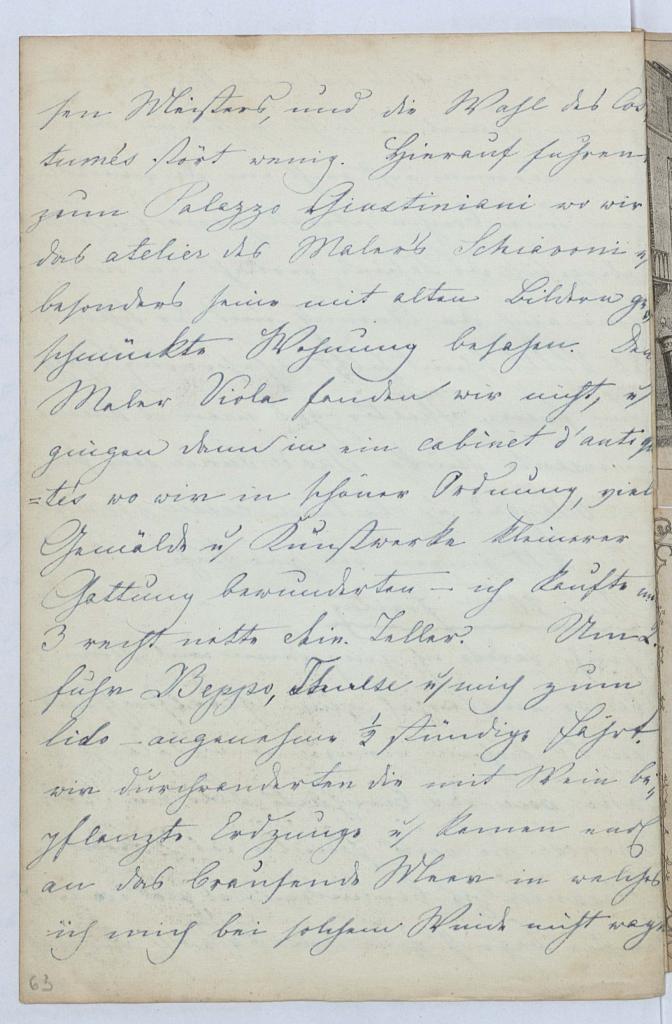 sen Meisters, und die Wahl des Cos
tumes stört wenig. Hierauf fuhren
zum Palazzo Giustiniani wo wir
das atelier des Maler's Schiavoni u/
besonders seine mit alten Bildern ge=
schmückte Wohnung besahen. Den
Maler Viola fanden wir nicht, u/
gingen dann in ein cabinet d'antiq
=tés wo wir in schöner Ordnung, viel
Gemälde u/ Kunstwerke kleinerer
Gattung bewunderten – ich kaufte
3 recht nette chin. Teller. Um 2.
fuhr Beppo, Therese u/ mich zum
lido – angenehme ½ stündige Fahrt.
wir durchwanderten die mit Wein be=
pflanzte Erdzunge u/ kamen end
an das brausende Meer in welches
ich mich bei solchem Winde nicht wag
63